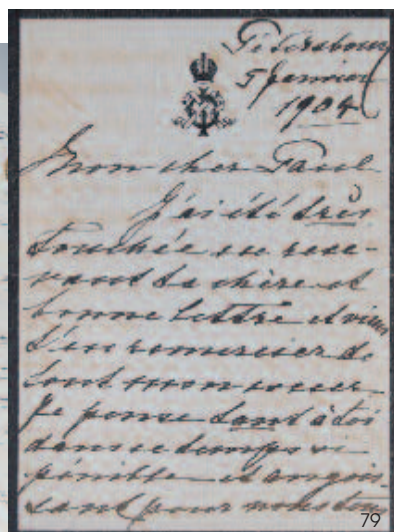 Petersbourg
5 Janvier
1904
Mon cher Paul
J'ai été très
touchée en rece-
vant ta chère et
bonne lettre et viens
t'en remercier de
tout mon coeur
Je pense tant à toi
dans ce temps si
pénible et angois-
sant pour nous tous
79